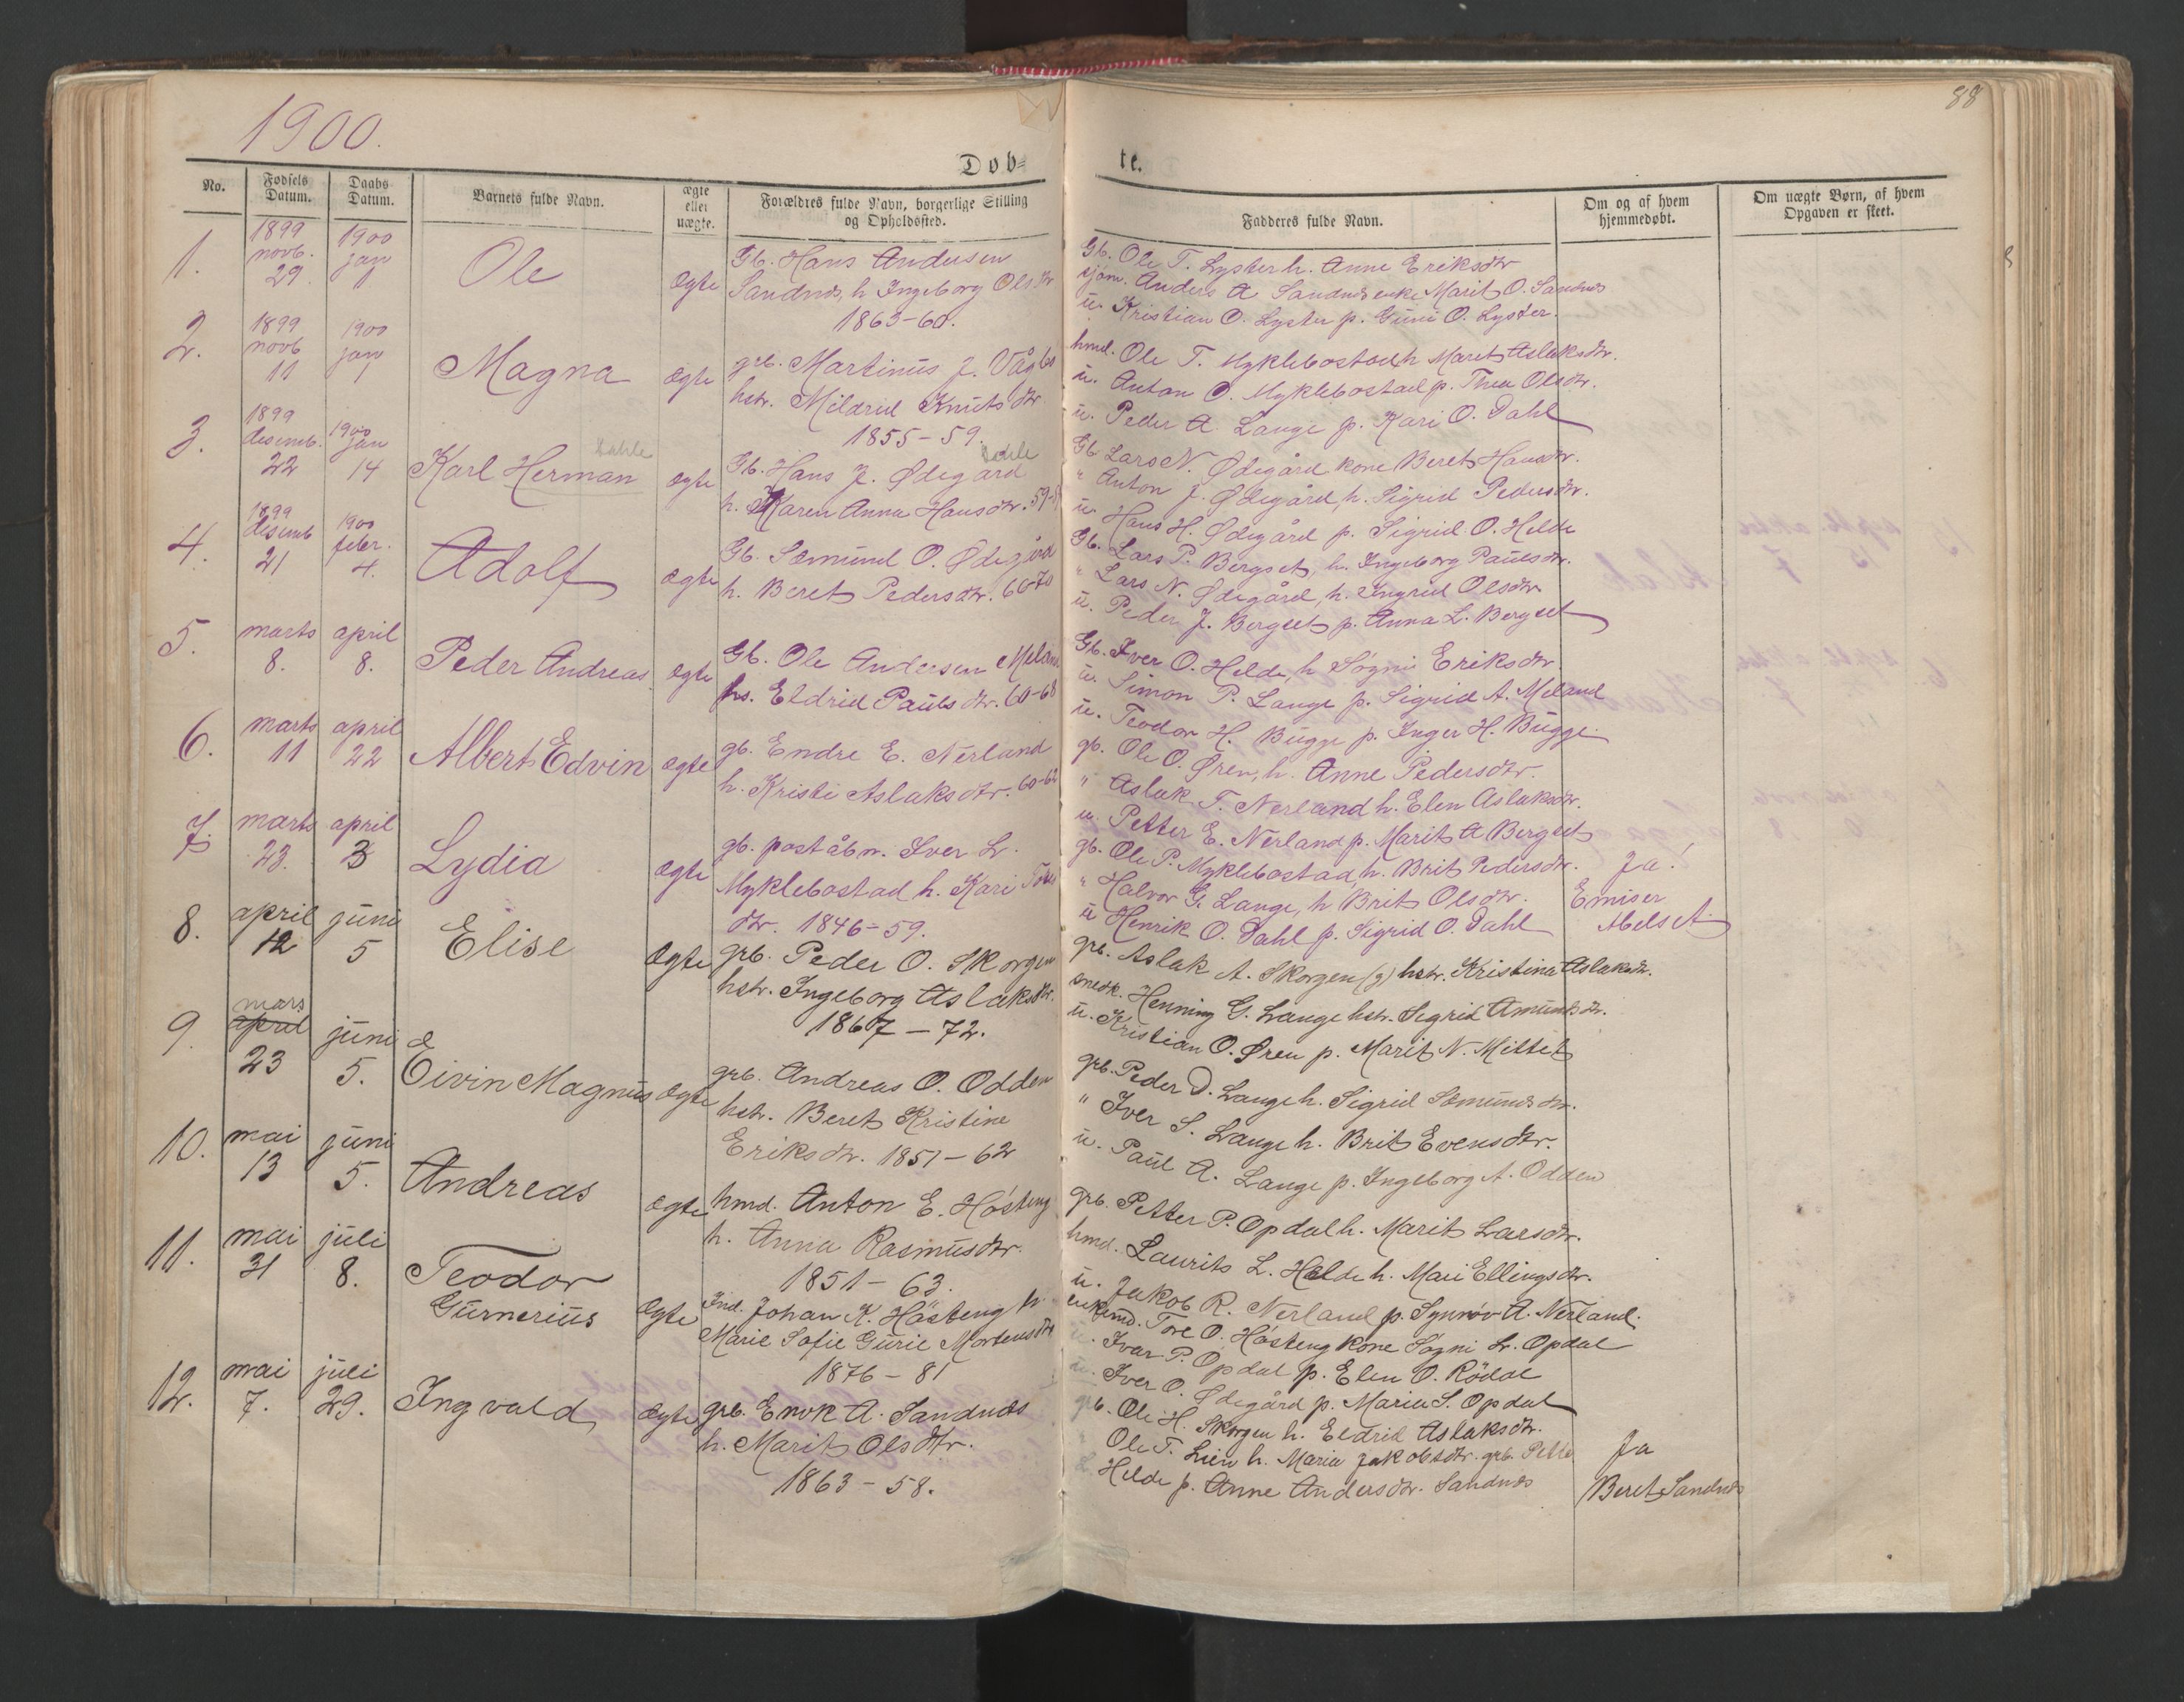 1900.
88
Døb=
te.
No.
Fødsels Datum.
Daabs Datum.
Barnets fulde Navn.
ægte eller uægte.
Forældres fulde Navn, borgerlige Stilling og Opholdssted.
Fadderes fulde Navn.
Om og af hvem hjemmedøbt.
Om uægte Børn, af hvem Opgaven er skeet.
1. 1899 novb. 29. 1900 jan 1 Ole ægte
Gb. Hans Andersen
Sandnes, h Ingeborg Olsdtr
1863-60.
Gb. Ole T. Lyster h. Anne Eriksdtr
Anders A Sandnes enke Marit O. Sandnes
u. Kristian O. Lyster p. Guni O. Lyster.
2. 1899 novb 11 1900 jan 1 Magna ægte
grb. Martinus J. Vågbø
hstr. Mildrid Knutsdtr.
1855-59.
hmd. Ole T. Myklebostad h Marit Aslaksdtr.
u. Anton O. Myklebostad p. Thea Olsdtr.
u. Peder A. Lange p. Kari O. Dahl
3. 1899 desemb. 22 1900 jan 14 Karl Herman ægte
Gb. Hans J. Ødegård
h. Karen Anna Hansdtr.
Gb. Lars N. Ødegård kone Beret Hansdtr.
" Anton J. Ødegård, h. Sigrid Pedersdtr.
u. Hans H. Ødegård p. Sigrid O. Helde
4. 1899 desemb 21 1900 febr. 4. Adolf ægte
Gb. Sæmund O. Ødegård
h. Beret Pedersdtr. 66-70
Gb. Lars P. Bergset, h. Ingeborg Paulsdtr.
" Lars N. Ødegård, h. Ingrid Olsdtr
u. Peder J. Bergset p. Anna L. Bergset
5. marts 8. april 8. Peder Andreas ægte
Gb. Ole Andersen
hs. Eldrid Paulsdtr. 60-68
Gb. Iver O. Helde, h Søgni Eriksdtr.
u. Simon P. Lange p. Sigrid A. Meland
u. Teodor H. Bugge p. Inger H. Bugge
6. marts 11 april 22 Albert Edvin ægte
gb. Endre E. Nerland
h. Kristi Aslaksdtr. 60-62
gb. Ole O. Øren, h. Anne Pedersdtr.
" Aslak T. Nerland h. Elen Aslaksdtr.
u. Petter E. Nerland p. Marit A Bergset
7. marts 23. april 3 Lydia ægte
gb. poståbn. Iver L.
Myklebostad h. Kari
dtr. 1846-59.
gb. Ole P. Myklebostad, h. Brit Pedersdtr. Ja!
" Halvor G. Lange, h Brit Olsdtr. Emiser
u Henrik O. Dahl p. Sigrid O. Dahl
8. april 12 juni 5 Elise ægte
grb. Peder O. Skorgen
hstr. Ingeborg Aslaksdtr.
1867-72.
grb. Aslak A. Skorgen (g) hstr. Kristina Aslaksdtr.
smedk. Henning G. Lange hstr. Sigrid Amundsdtr.
u. Kristian O. Øren p. Marit N. Mittet
9. april mars 23 juni 5. Eivin Magnus ægte
grb. Andreas O. Odden
hstr. Beret Kristine
Eriksdtr. 1851-62
grb. Peder D. Lange h. Sigrid Sæmundsdtr.
" Iver S. Lange h. Brit Evensdtr.
u. Paul A. Lange p. Ingeborg A. Odden
10. mai 13 juni 5. Andreas ægte
hmd. Anton E. Håsteng
h. Anna Rasmusdtr.
1851-63.
grb. Petter P. Opdal h. Marit Larsdtr.
hmd. Laurits L. Helde h. Mari Ellingsdtr.
u. Jakob R. Nerland p. Synnøv A. Nerland.
11. mai 31 juli 8. Teodor Gurnerius ægte
Ind. Johan K. Håsteng h.
Marie Sofie Gurie Mortensdtr
1876-81
enkemd. Tore O. Håsteng kone Søgni L. Opdal
u. Ivar P. Opdal p. Elen O. Rödal
u. Iver O. Ødegård p. Maria S. Opdal
12. mai 7. juli 29. Ingvald ægte
grb. Enok A. Sandnes
h. Marit Olsdtr.
1863-58.
grb. Ole H. Skorgen h. Eldrid Aslaksdtr.
Ole T. Lien h. Maria Jakobsdtr. grb. Ja
Helde p. Anne Andersdtr. Sandnes Beret Sandnes